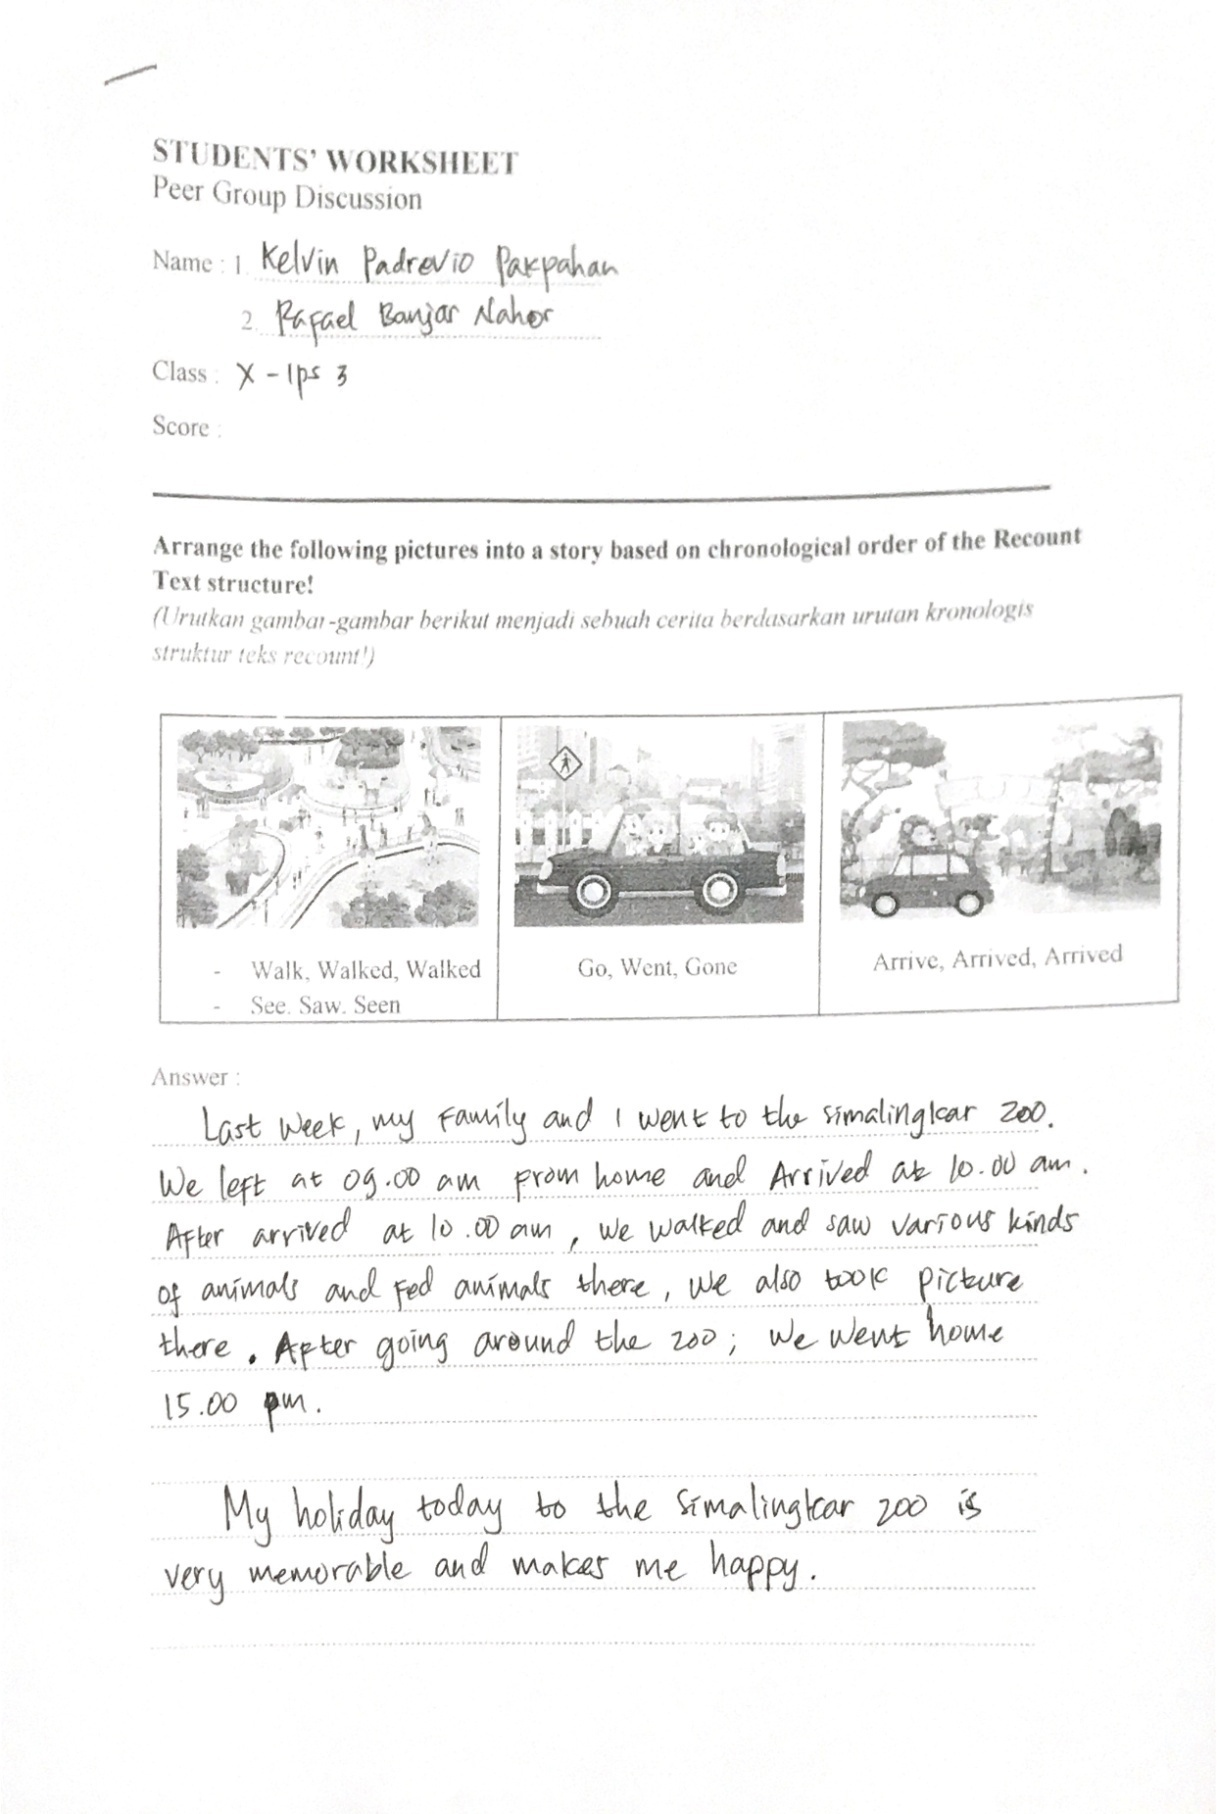 STUDENTS' WORKSHEET
Peer Group Discussion
Name : 1. Kelvin Padrevio Pakpahan
2. Rafael Banjar Nahor
Class : X - Ips 3
Score :
Arrange the following pictures into a story based on chronological order of the Recount
Text structure!
(Urutkan gambar-gambar berikut menjadi sebuah cerita berdasarkan urutan kronologis
struktur teks recount!)
- Walk, Walked, Walked
- See. Saw. Seen
Go, Went, Gone
Arrive, Arrived, Arrived
Answer :
Last week, my Family and I went to the simalingkar zoo.
We left at 09.00 am from home and Arrived at 10.00 am.
After arrived at 10.00 am, we walked and saw various kinds
of animals and Fed animals there, we also took picture
there. After going around the zoo; we went home
15.00 pm.
My holiday today to the simalingkar zoo is
very memorable and makes me happy.